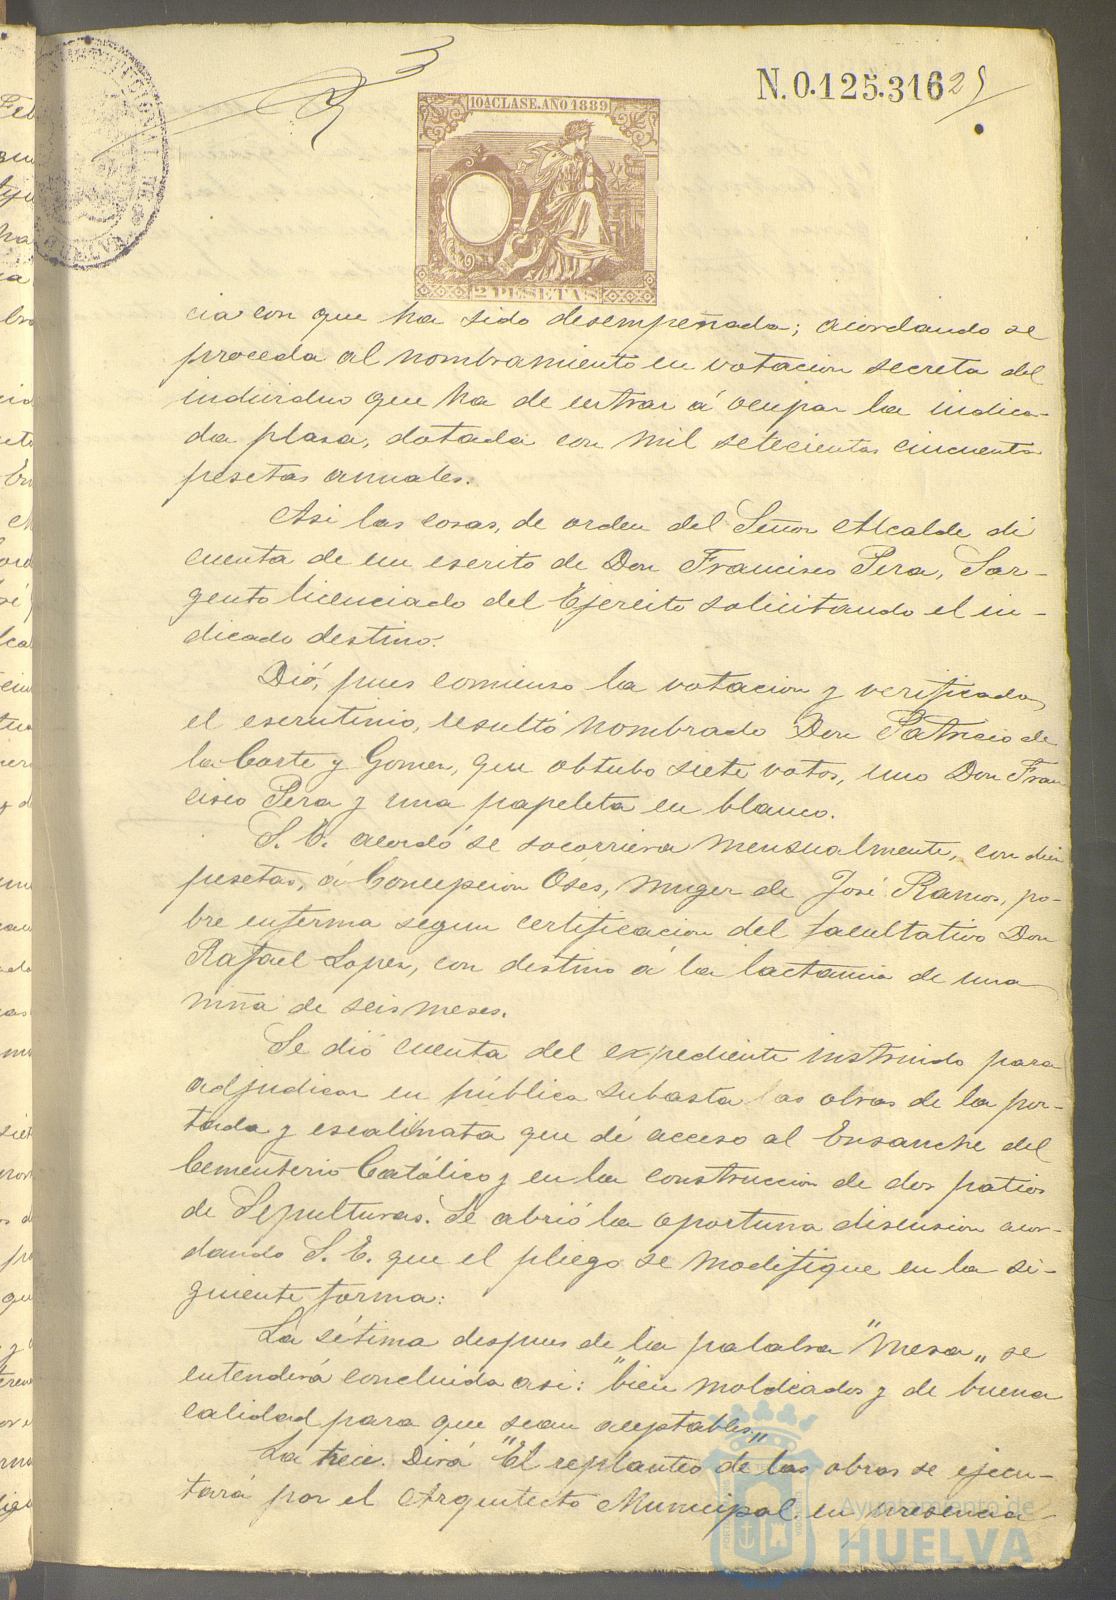 3
N. 0.125.316 25
10A CLASE. AÑO 1889
2 PESETAS
cia con que ha sido desempeñada; acordando se
proceda al nombramiento en votacion secreta del
individuo que ha de entrar á ocupar la indica-
da plasa, dotada con mil setecientas cincuenta
pesetas anuales.
Asi las cosas, de orden del Señor Alcalde dí
cuenta de un escrito de Don Francisco Pera, Sar-
gento licenciado del Ejercito solicitando el in-
dicado destino.
Dió, pues comienso la votacion y verificado
el escrutinio, resultó nombrado Don Patricio de
la Corte y Gomez, que obtubo siete votos, uno Don Fran
cisco Pera y una papeleta en blanco.
S. E. acordó se socorriera mensualmente, con diez
pesetas, á Concepcion Osés, muger de José Ramos, po-
bre enferma segun certificacion del facultativo Don
Rafael Lopez, con destino á la lactancia de una
niña de seis meses.
Se dió cuenta del expediente instruido para
adjudicar en pública subasta las obras de la por-
tada y escalinata que dé acceso al Ensanche del
Cementerio Católico y en la construccion de dos patios
de Sepulturas. Se abrió la oportuna discusion acor-
dando S. E. que el pliego se modifique en la si-
guiente forma:
La sétima despues de la palabra "mesa" se
entenderá concluida asi: "bien moldeados y de buena
calidad para que sean aceptables"
La trece. Dirá "El replanteo de las obras se ejecu-
tará por el Arquitecto Municipal en presencia
Ayuntamiento de
HUELVA